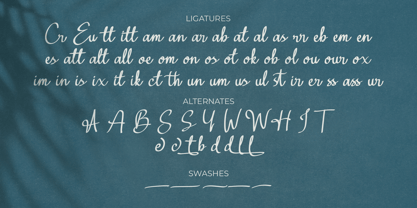 LIGATURES
Cr Eu tt itt am an ar ab at al as rr eb em en
es att alt all oe om on os ot ok ob ol ou our ox
im in is ix it ik ct th un um us ul st ir er ss ass ur
ALTERNATES
A A B S S Y W W H I T
e o t b d d l L
SWASHES